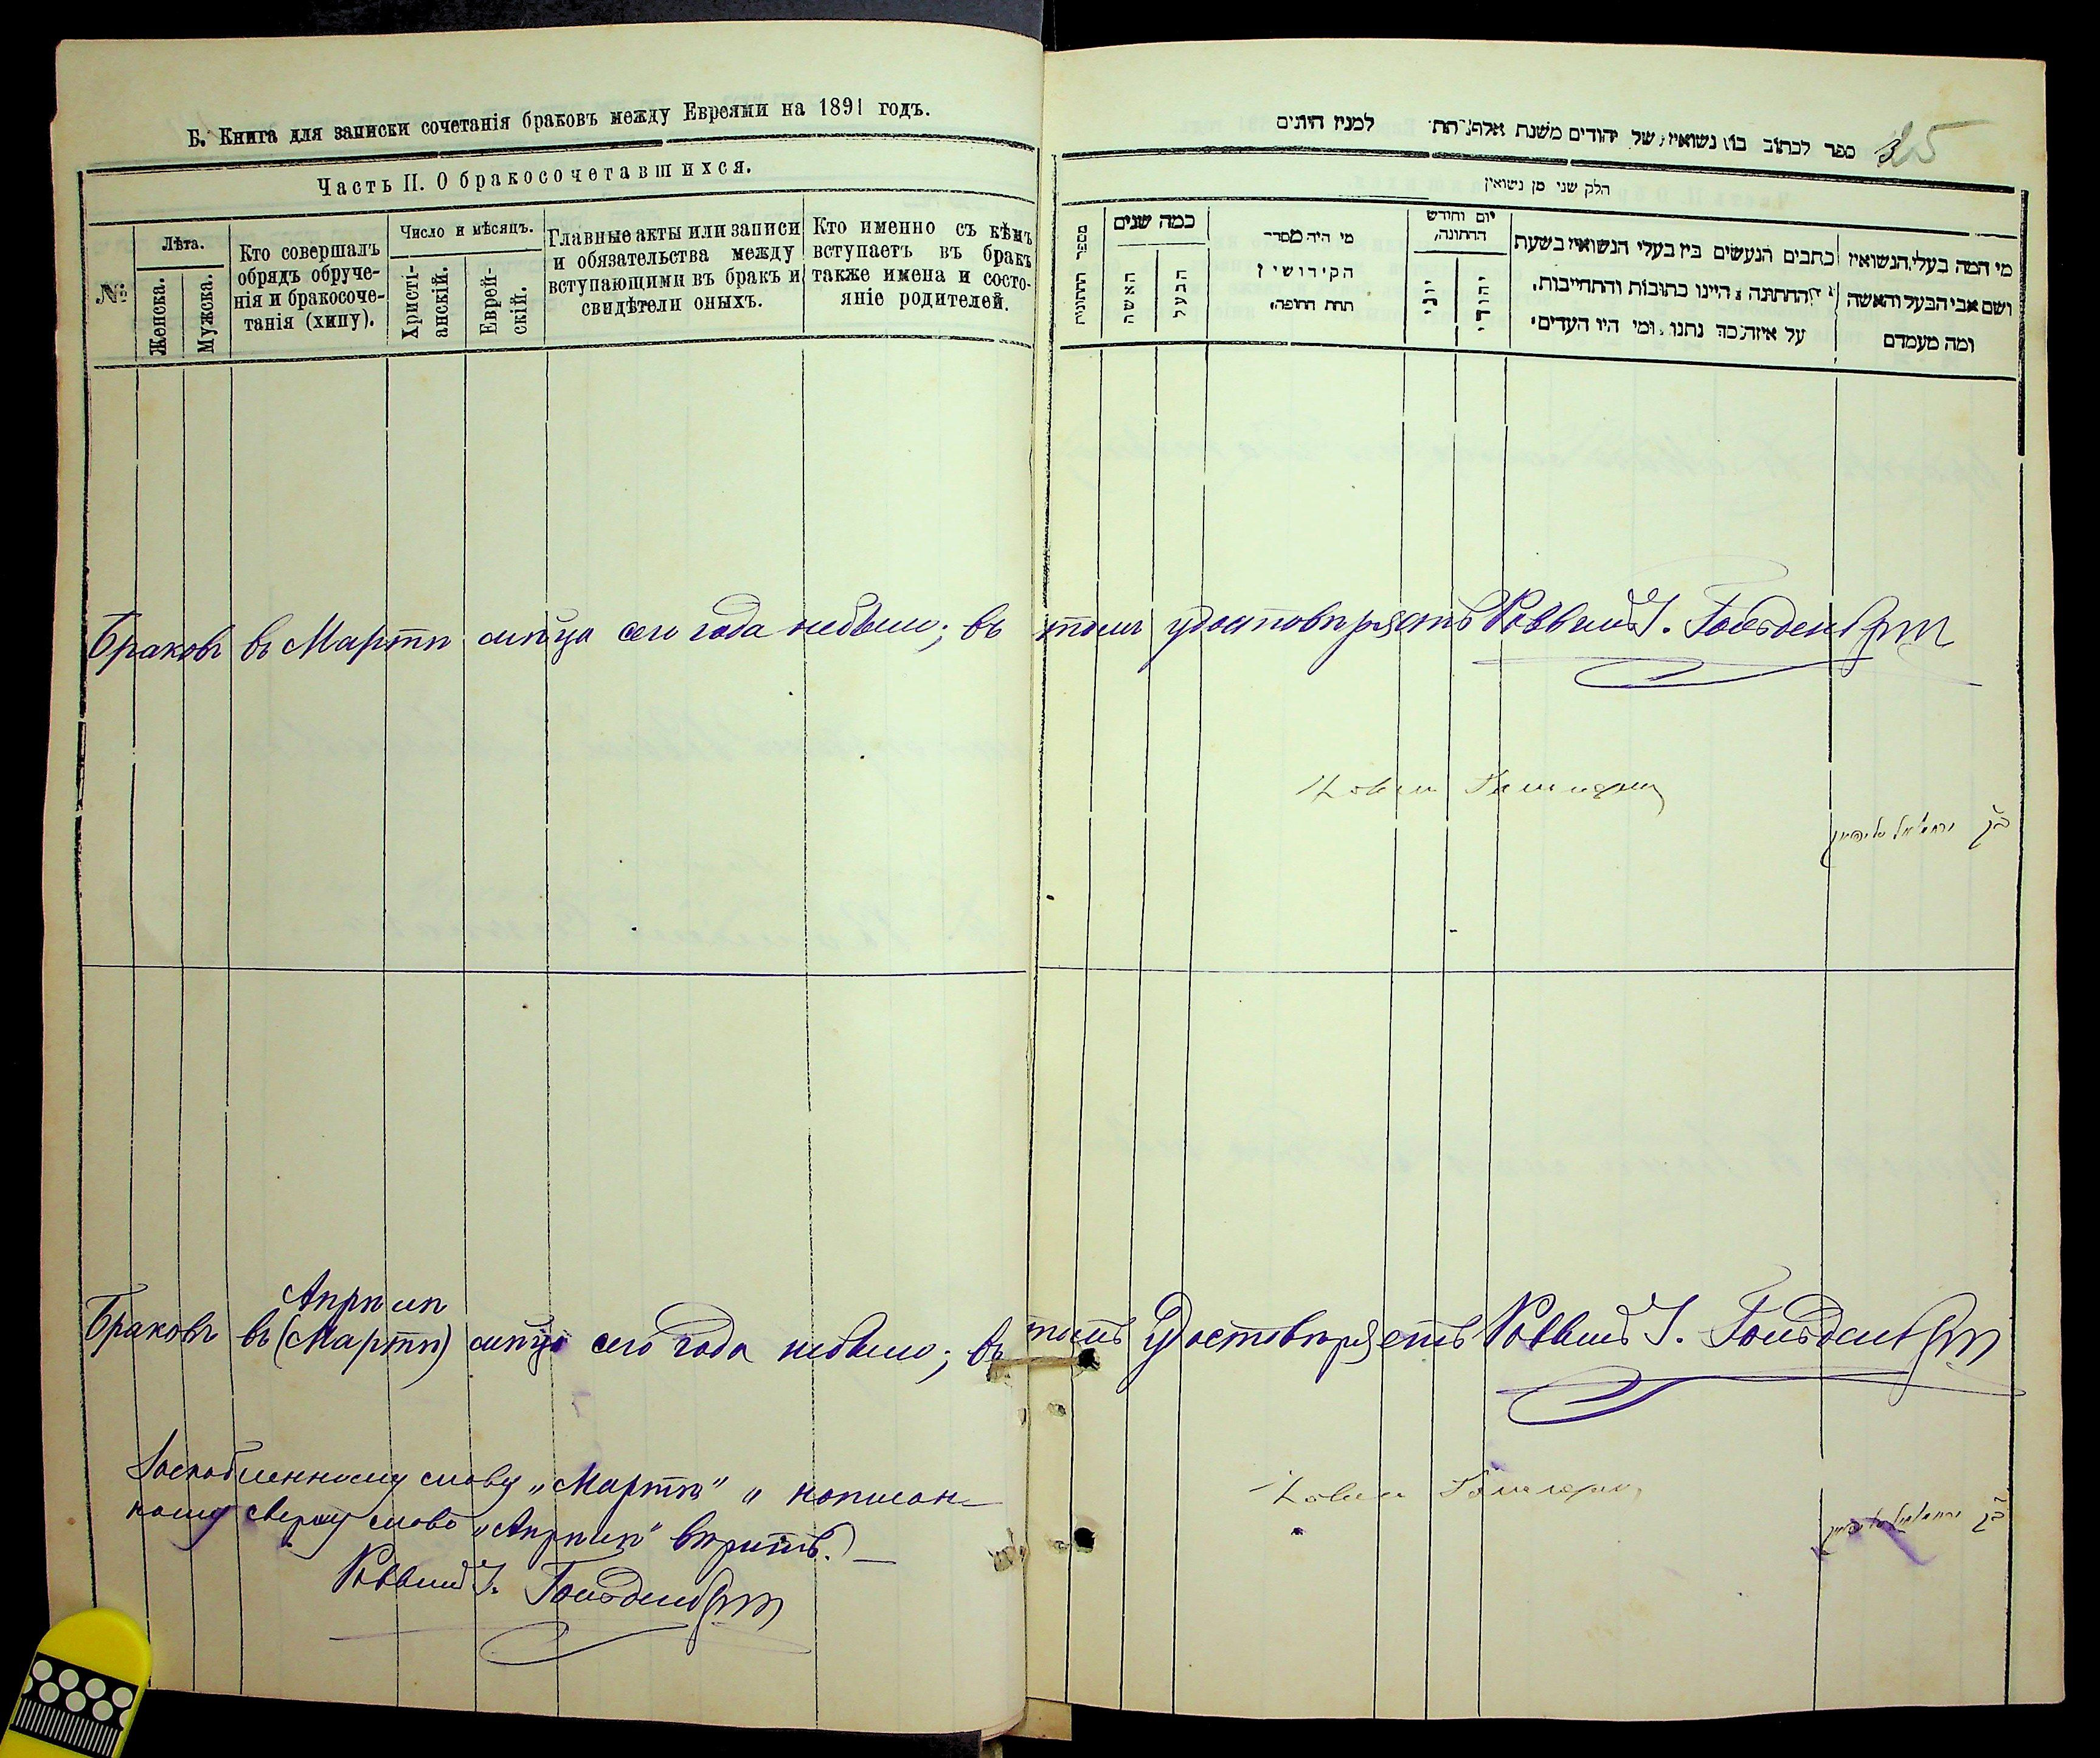 Б. Книга для записки сочетанія браковъ между Евреями на 1891 годъ.
Часть II. О бракосочетавшихся.
№
Лѣта.
Женска.
Мужска.
Кто совершалъ
обрядъ обруче-
нія и бракосоче-
танія (хипу).
Число и мѣсяцъ.
Христі-
анскій.
Еврей-
скій.
Главные акты или записи
и обязательства между
вступающими въ бракъ и
свидѣтели оныхъ.
Кто именно съ кѣмъ
вступаетъ въ бракъ
также имена и состо-
яніе родителей.
Браковъ въ Мартѣ мѣца сего года небыло; въ
Апрѣлѣ
Браковъ въ (Мартѣ) мѣца сего года небыло; въ
слову „Мартѣ“ и написан-
ному сверху слово „Апрѣлѣ“ вѣрить.
Раввинъ І. Гольденбергъ
ספר לכתוב בו נשואין של יהודים משנת למנין היונים
35
חלק שני מן נשואין
מספר החתונות
כמה שנים
האשה
הבעל
מי היה מסדר
הקידושין
תחת החופה
יום וחודש
החתונה
יוני
יהודי
כתבים הנעשים בין בעלי הנשואין בשעת
החתונה היינו כתובות והתחייבות,
על איזה סך נתנו ומי היו העדים
מי המה בעלי הנשואין
ושם אבי הבעל והאשה
ומה מעמדם
томъ удостовѣряетъ Раввинъ І. Гольденбергъ
томъ удостовѣряетъ Раввинъ І. Гольденбергъ